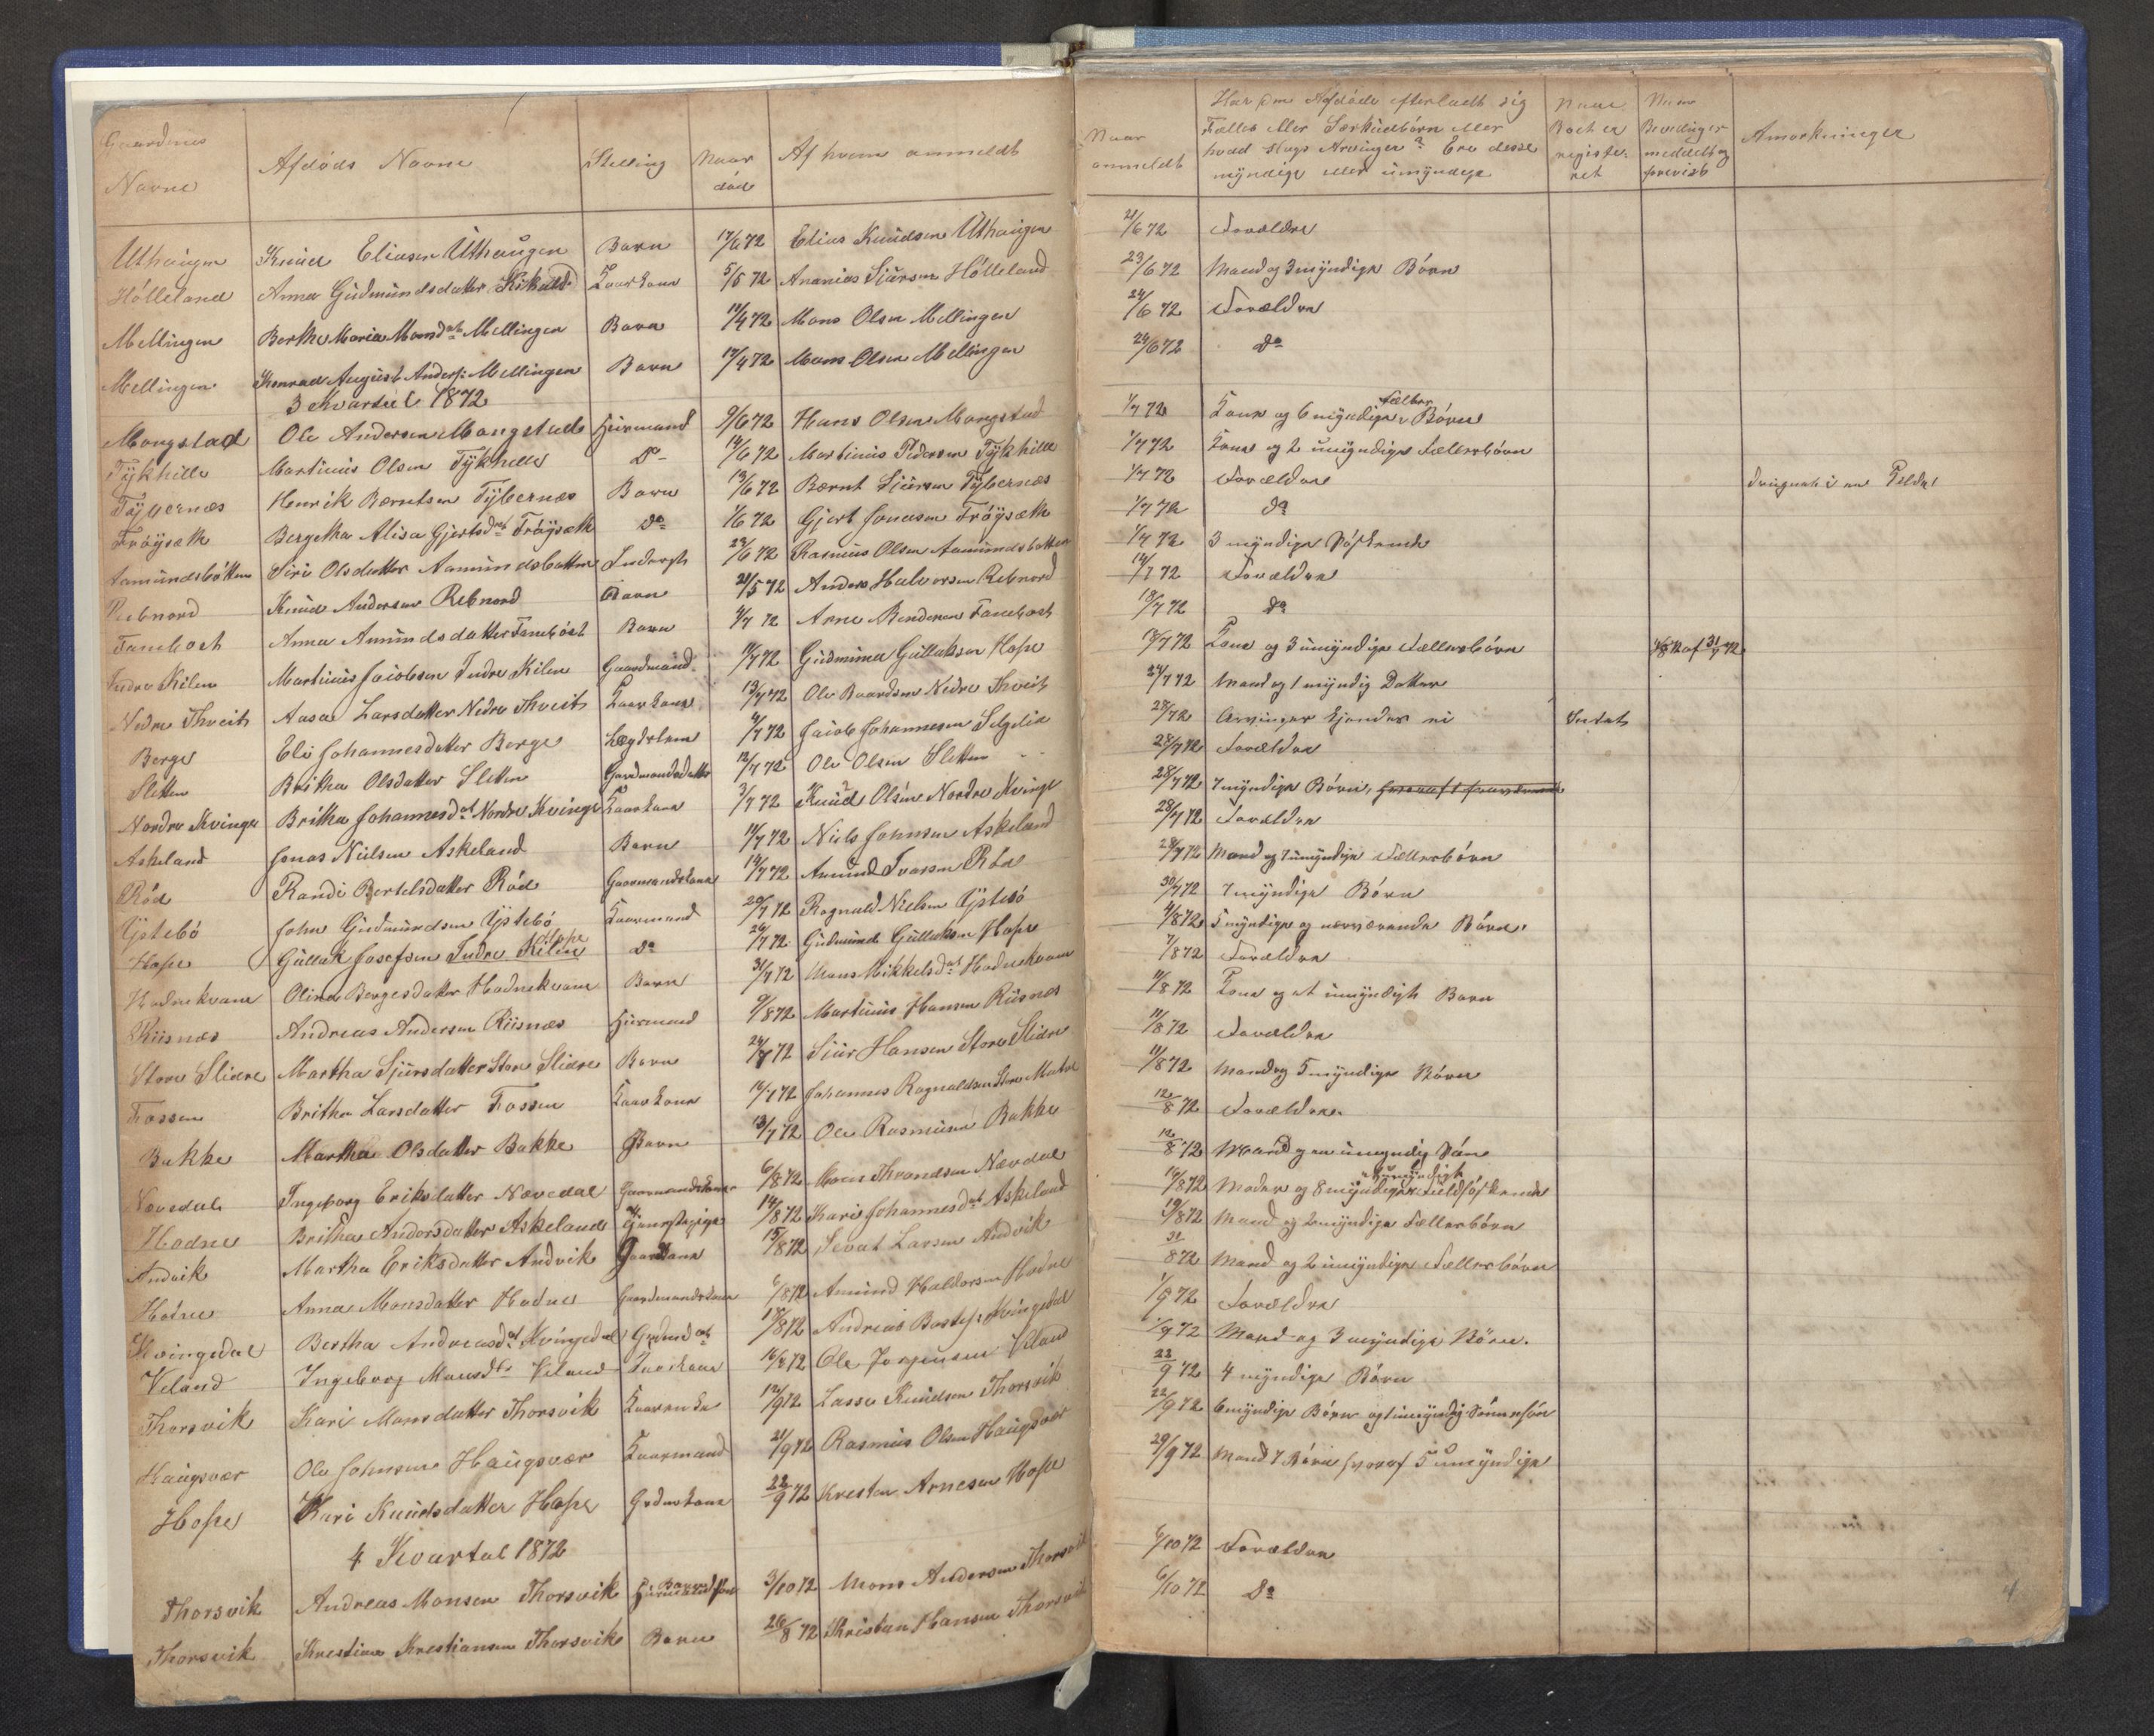 Gaardenes Navne | Afdøds Navne | Stelling | Naar død | Af hvem anmeldt | Naar anmeldt | Har den Afdøde efterladt sig Fælles eller Særkuldbörn eller hvad slags Arvinger? Ere desse myndige eller umyndige | Naar Boet er registeret | Naar Bevilling er meddelt og forevist | Anmærkninger
Uthaugen | Knud Eliasen Uthaugen | Barn | 17/6 72 | Elias Knudsen Uthaugen | 21/6 72 | Forældre
Hölleland | Anna Gudmundsdatter | Kaarkone | 5/5 72 | Ananias Sjursen Hölleland | 23/6 72 | Mand og 3 myndige Börn
Mellingen | Berthe Maria Monsdat Mellingen | Barn | /4 72 | Mons Olsen Mellingen | 24/6 72 | Forældre
Mellingen | Konrad August Anders: Mellingen | Barn | 17/4 72 | Mons Olsen Mellingen | 24/6 72 | do
3 Kvartal 1872
Mongstad | Ole Andersen Mongstad | Huusmand | 9/6 72 | Hans Olsen Mongstad | 1/7 72 | Kone og 6 myndige Fælles Börn
Tykhelle | Martinus Olsen Tykhelle | do | 14/6 72 | Martinus Pedersen Tykhelle | 1/7 72 | Kone og 2 umyndige Fællesbörn
Fybernæs | Henrik Berntsen Fybernæs | Barn | 13/6 72 | Bernt Sjursen Fybernæs | 1/7 72 | Forældre | druknet i en
Fröysæth | Bergetha Alisa Gjertsdat Fröysæth | do | 1/6 72 | Gjert Jonasen Fröysæth | 1/7 72 | do
Aamundsbotten | Siri Olsdatter Aamundsbotten | Inderst | 24/6 72 | Rasmus Olsen Aamundsbotten | 1/7 72 | 3 myndige Söskende
Rebnord | Knud Andersen Rebnord | Barn | 21/5 72 | Anders Halvorsen Rebnord | 14/7 72 | Forældre
Fanebost | Anna Amundsdatter Fanebost | Barn | 4/7 72 | Arne Fanebost | 18/7 72 | do
Indre Kilen | Martinus Jacobsen Indre Kilen | Gaardmand | 11/7 72 | Gudmund Gullaksen Hope | 18/7 72 | Kone og 3 umyndige Fællesbörn | af 31/7 72
Nedre Thveit | Aasa Larsdatter Nedre Thveit | Kaarkone | 13/7 72 | Ole Baardsen Nedre Thveit | 24/7 72 | Mand og 1 myndig Datter
Berge | Eli Johannesdatter Berge | Lægdslem | 4/7 72 | Jacob Johannesen Selgelid | 28/7 72 | Arvinger kjendes ei | Intet
Sletten | Britha Olsdatter Sletten | Gaardmandsdatter | 12/7 72 | Ole Olsen Sletten | 28/7 72 | Forældre
Nordre Kvinge | Britha Johannesdat Nordre Kvinge | Kaarkone | 3/7 72 | Knud Olsen Nordre Kvinge | 28/7 72 | 7 myndige Börn,
Askeland | Jonas Nielsen Askeland | Barn | 11/7 72 | Niels Johnsen Askeland | 28/7 72 | Forældre
Röd | Randi Bertelsdatter Röd | Gaarmandskone | 14/7 72 | Amund Ivarsen Röd | 28/7 72 | Mand og 7 umyndige Fællesbörn
Ystebö | John Gudmundsen Ystebö | Kaarmand | 20/7 72 | Ragnald Nielsen Ystebö | 30/7 72 | 7 myndige Börn
Hope | Gullak Josefsen Indre Kilen Hope | do | 26/7 72 | Gudmund Gullaksen Hope | 4/8 72 | 5 myndige og nærværende Börn.
Hodnekvam | Olina Borgesdatter Hodnekvam | Barn | 31/7 72 | Mons Mikkelsdat Hodnekvam | 7/8 72 | Forældre
Riisnæs | Andreas Andersen Riisnæs | Huusmand | 9/8 72 | Martinus Hansen Riisnæs | 11/8 72 | Kone og et umyndigt Barn
Store Slidre | Martha Sjursdatter Store Slidre | Barn | 24/7 72 | Sjur Hansen Store Slidre | 11/8 72 | Forældre
Fossen | Britha Larsdatter Fossen | Kaarkone | 16/7 72 | Johannes Ragnaldsen Store Matre | 11/8 72 | Mand og 5 myndige Börn
Bakke | Martha Olsdatter Bakke | Barn | 13/7 72 | Ole Rasmusen Bakke | 12/8 72 | Forældre.
Nævedal | Ingeborg Eriksdatter Nævedal | Gaarmandskone | 6/8 72 | Mons Throndsen Nævdal | 12/8 72 | Mand og en umyndig Sön
Hodne | Britha Andersdatter Askeland | Tjenestepige | 14/8 72 | Kari Johannesdat Askeland | 16/8 72 | Moder og 8 myndige
Andvik | Martha Eriksdatter Andvik | Kaarkone | 15/8 72 | Sevat Larsen Andvik | 19/8 72 | Mand og 2 myndige Fællesbörn
Hodne | Anna Monsdatter Hodne | Gaardmandskone | 6/8 72 | Amund Haldorsen Hodne | 31/8 72 | Mand og 2 umyndige Fællesbörn
Kvingedal | Bertha Andreasdat Kvingedal | Grdmdat | 18/8 72 | Andreas Kvingedal | 1/9 72 | Forældre
Veland | Ingeborg Monsdtr Veland | Kaarkone | 16/8 72 | Ole Jørgensen Veland | 1/9 72 | Mand og 3 myndige Börn.
Thorsvik | Kari Monsdatter Thorsvik | Kaarenke | 12/9 72 | Lasse Knudsen Thorsvik | 22/9 72 | 4 myndige Börn
Haugsvær | Ole Johnsen Haugsvær | Kaarmand | 21/9 72 | Rasmus Olsen Haugsvær | 22/9 72 | 6 myndige Börn og 1 umyndig Sönnesön
Hope | Kari Knudsdatter Hope | Grdmskone | 22/9 72 | Kresten Arnesen Hope | 29/9 72 | Mand 7 Börn hvoraf 5 umyndige
4 Kvartal 1872
Thorsvik | Andreas Monsen Thorsvik | Barn | 3/10 72 | Mons Andersen Thorsvik | 6/10 72 | Forældre
Thorsvik | Krestine Krestiansen Thorsvik | Barn | 26/8 72 | Kristian Hansen Thorsvik | 6/10 72 | do
4